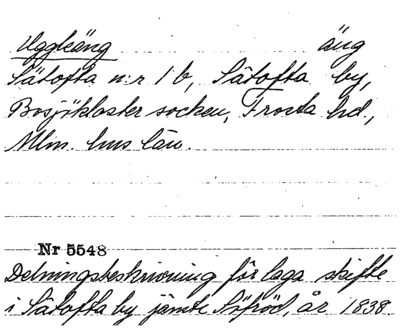 Uggleäng äng
Sätofta n:r 1 b, Sätofta by,
Bosjökloster socken, Frosta hd.,
Mlm. hus län.
Nr 5548
Delningsbeskrivning för laga skifte
i Sätofta by jämte Stöfröd, år 1838